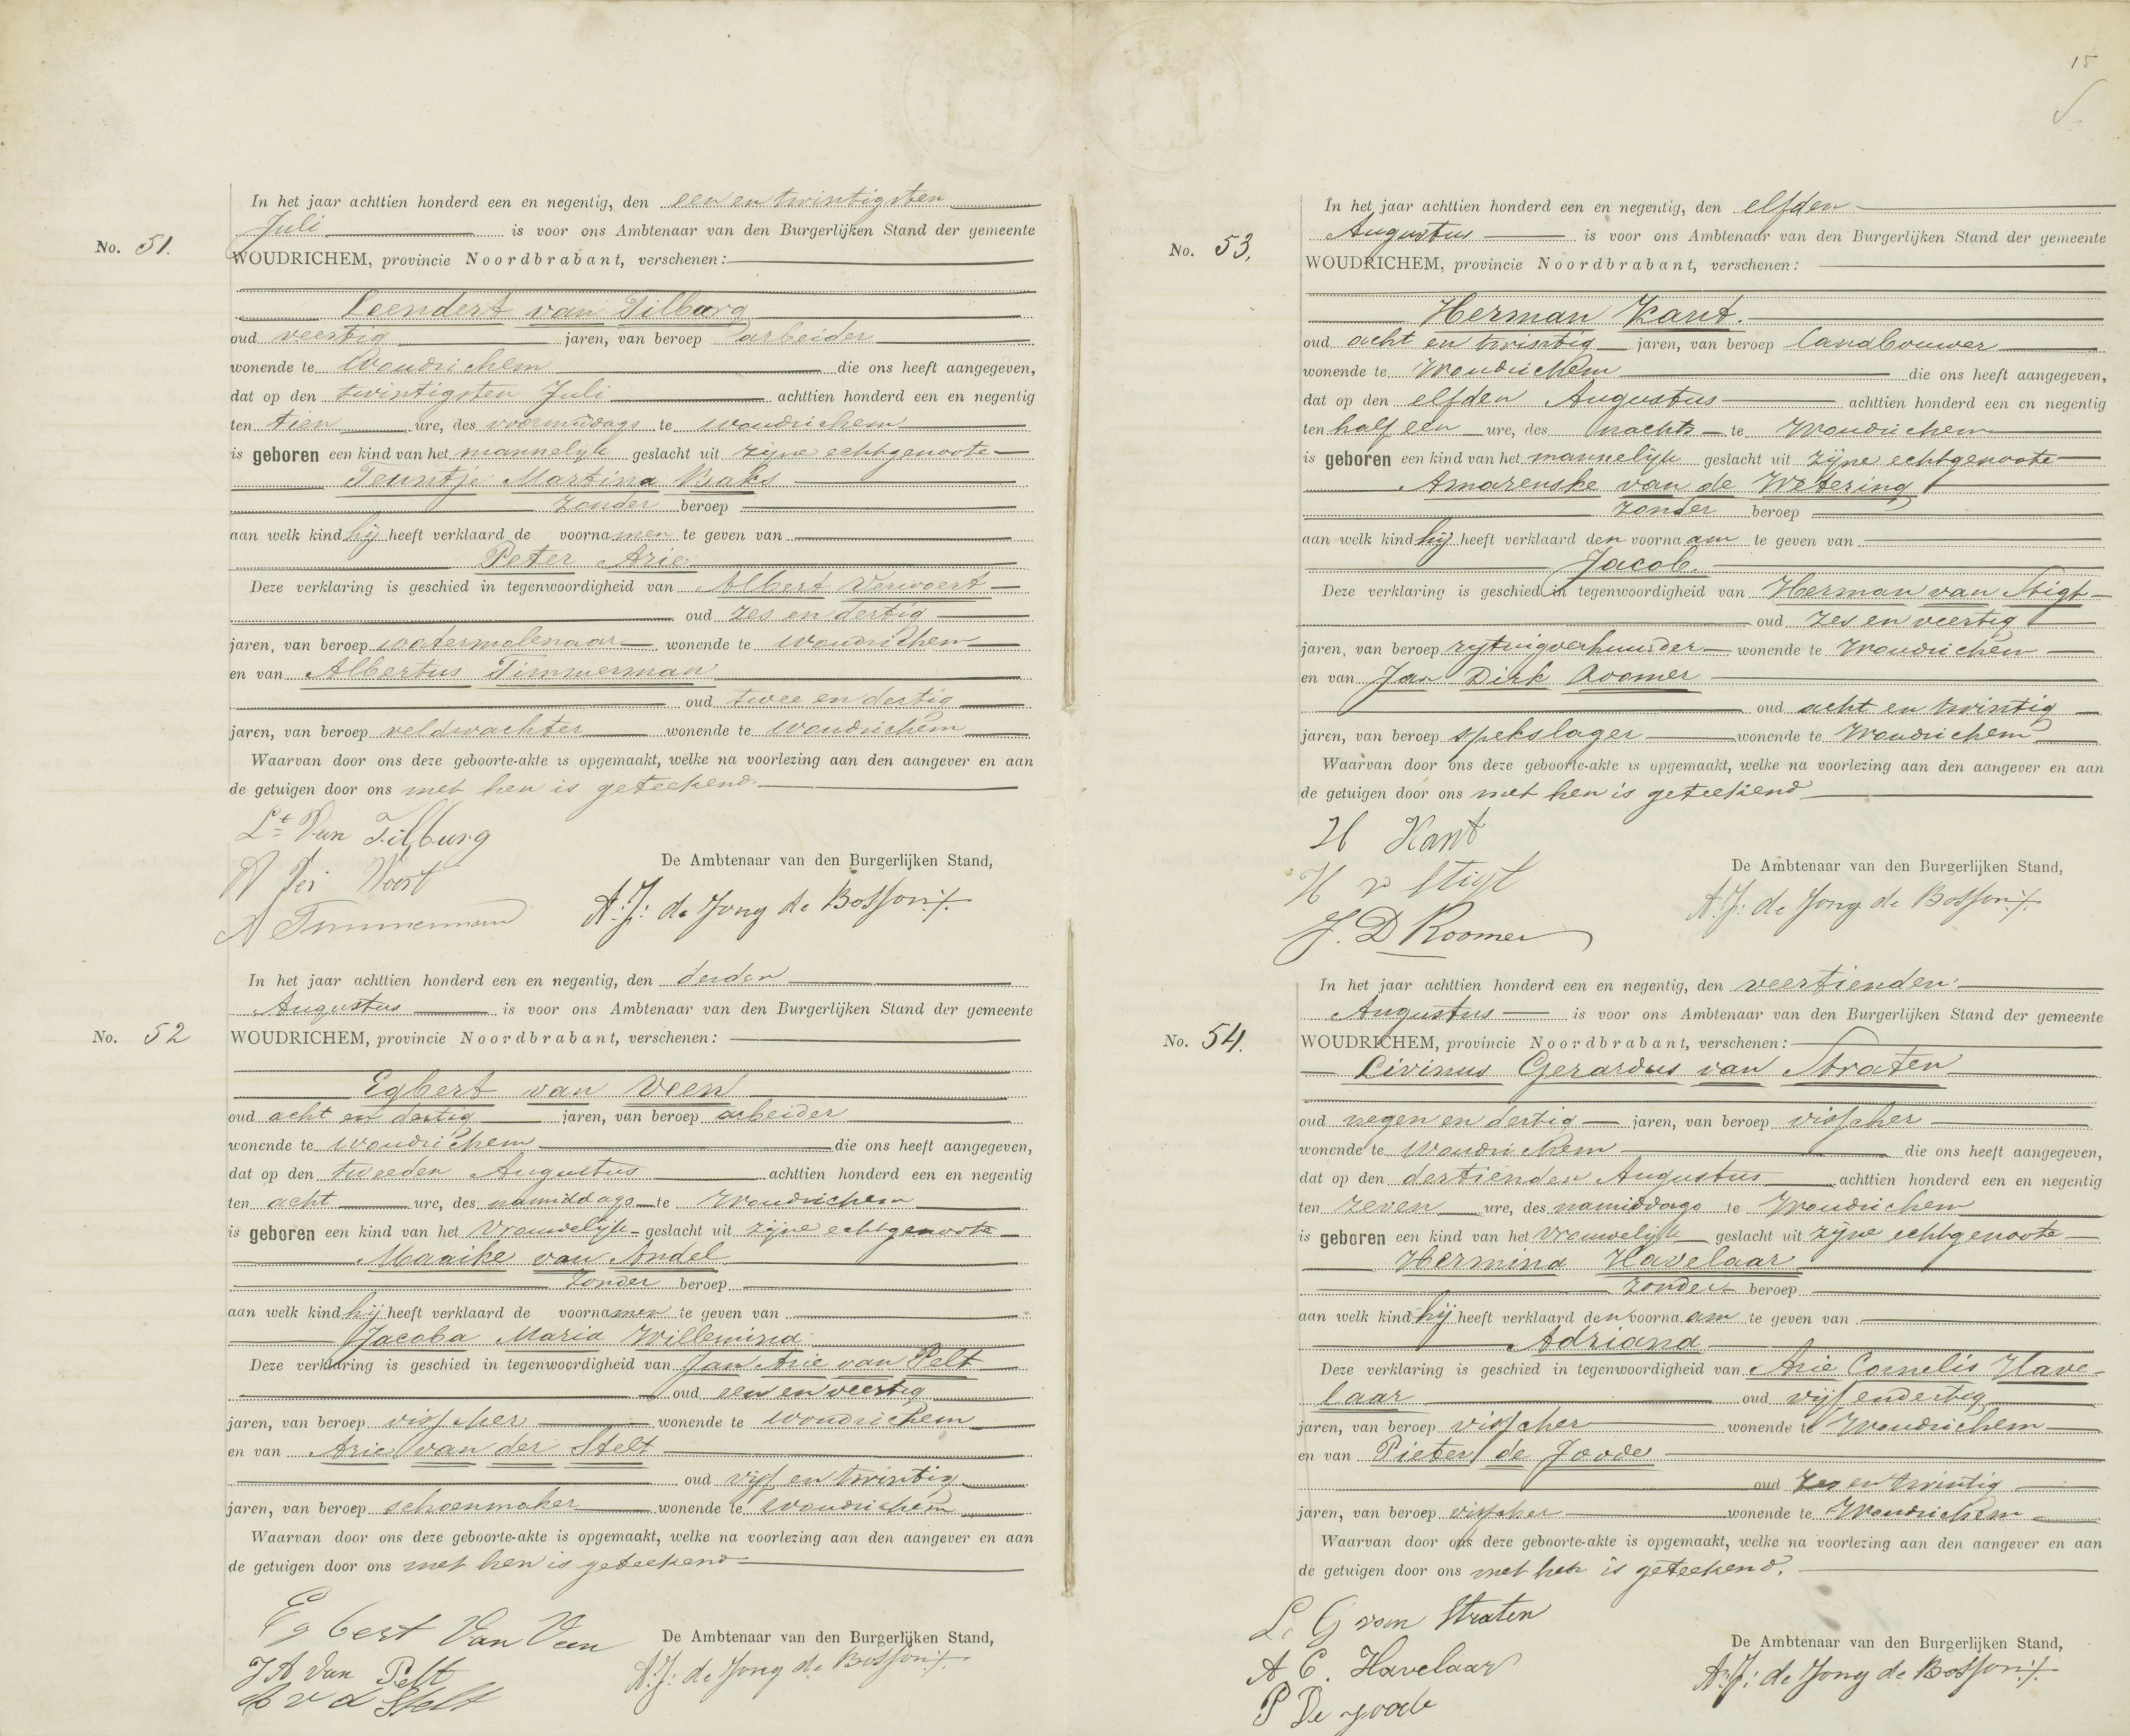 In het jaar achttien honderd een en negentig, den een en twintigsten
Juli is voor ons Ambtenaar van den Burgerlijken Stand der gemeente
No. 51. WOUDRICHEM, provincie Noordbrabant, verschenen:
Leendert van Tilburg
oud veertig jaren, van beroep arbeider
wonende te Woudrichem die ons heeft aangegeven,
dat op den twintigsten Juli achttien honderd een en negentig
ten tien ure, des voormiddags te Woudrichem
is geboren een kind van het mannelijk geslacht uit zijne echtgenoote
Teuntje Martina Baks
zonder beroep
aan welk kind hij heeft verklaard de voornamen te geven van
Peter Arie
Deze verklaring is geschied in tegenwoordigheid van Albert Verwoert
oud zes en dertig
jaren, van beroep watermolenaar wonende te Woudrichem
en van Albertus Timmerman
oud twee en dertig
jaren, van beroep veldwachter wonende te Woudrichem
Waarvan door ons deze geboorte-akte is opgemaakt, welke na voorlezing aan den aangever en aan
de getuigen door ons met hen is geteekend.
Lt Van Tilburg
De Ambtenaar van den Burgerlijken Stand,
A Ver Woert
A.J: de Jong de Bosson
A Timmerman
In het jaar achttien honderd een en negentig, den derden
Augustus is voor ons Ambtenaar van den Burgerlijken Stand der gemeente
No. 52 WOUDRICHEM, provincie Noordbrabant, verschenen:
Egbert van Veen
oud acht en dertig jaren, van beroep arbeider
wonende te Woudrichem die ons heeft aangegeven,
dat op den tweeden Augustus achttien honderd een en negentig
ten acht ure, des namiddags te Woudrichem
is geboren een kind van het Vrouwelijk geslacht uit zijne echtgenoote
Maaike van Andel
zonder beroep
aan welk kind hij heeft verklaard de voornamen te geven van
Jacoba Maria Willemina
Deze verklaring is geschied in tegenwoordigheid van Jan Arie van Pelt
oud een en veertig
jaren, van beroep visscher wonende te Woudrichem
en van Arie van der Stelt
oud vijf en twintig
jaren, van beroep schoenmaker wonende te Woudrichem
Waarvan door ons deze geboorte-akte is opgemaakt, welke na voorlezing aan den aangever en aan
de getuigen door ons met hen is geteekend
Egbert Van Veen
De Ambtenaar van den Burgerlijken Stand,
J A van Pelt
A.J: de Jong de Bosson
A v d Stelt
15
In het jaar achttien honderd een en negentig, den elfden
Augustus is voor ons Ambtenaar van den Burgerlijken Stand der gemeente
No. 53. WOUDRICHEM, provincie Noordbrabant, verschenen:
Herman Kant.
oud acht en twintig jaren, van beroep landbouwer
wonende te Woudrichem die ons heeft aangegeven,
dat op den elfden Augustus achttien honderd een en negentig
ten half een ure, des nachts te Woudrichem
is geboren een kind van het mannelijk geslacht uit zijne echtgenoote
Amarenske van de Wetering
zonder beroep
aan welk kind hij heeft verklaard den voornaam te geven van
Jacob.
Deze verklaring is geschied in tegenwoordigheid van Herman van Stigt
oud zes en veertig
jaren, van beroep rijtuigverhuurder wonende te Woudrichem
en van Jan Dirk Roomer
oud acht en twintig
jaren, van beroep spekslager wonende te Woudrichem
Waarvan door ons deze geboorte-akte is opgemaakt, welke na voorlezing aan den aangever en aan
de getuigen door ons met hen is geteekend
H Kant
De Ambtenaar van den Burgerlijken Stand,
H v Stigt
A.J: de Jong de Bosson
J. D Roomer
In het jaar achttien honderd een en negentig, den veertienden
Augustus is voor ons Ambtenaar van den Burgerlijken Stand der gemeente
No. 54. WOUDRICHEM, provincie Noordbrabant, verschenen:
Livinus Gerardus van Straten
oud negen en dertig jaren, van beroep visscher
wonende te Woudrichem die ons heeft aangegeven,
dat op den dertienden Augustus achttien honderd een en negentig
ten zeven ure, des namiddags te Woudrichem
is geboren een kind van het Vrouwelijk geslacht uit zijne echtgenoote
Hermina Havelaar
zonder beroep
aan welk kind hij heeft verklaard den voornaam te geven van
Adriana
Deze verklaring is geschied in tegenwoordigheid van Arie Cornelis Have-
laar oud vijf en dertig
jaren, van beroep visscher wonende te Woudrichem
en van Pieter de Joode
oud zes en twintig
jaren, van beroep visscher wonende te Woudrichem
Waarvan door ons deze geboorte-akte is opgemaakt, welke na voorlezing aan den aangever en aan
de getuigen door ons met hen is geteekend.
L. G van Straten
De Ambtenaar van den Burgerlijken Stand,
A C. Havelaar
A.J: de Jong de Bosson
P De Joode